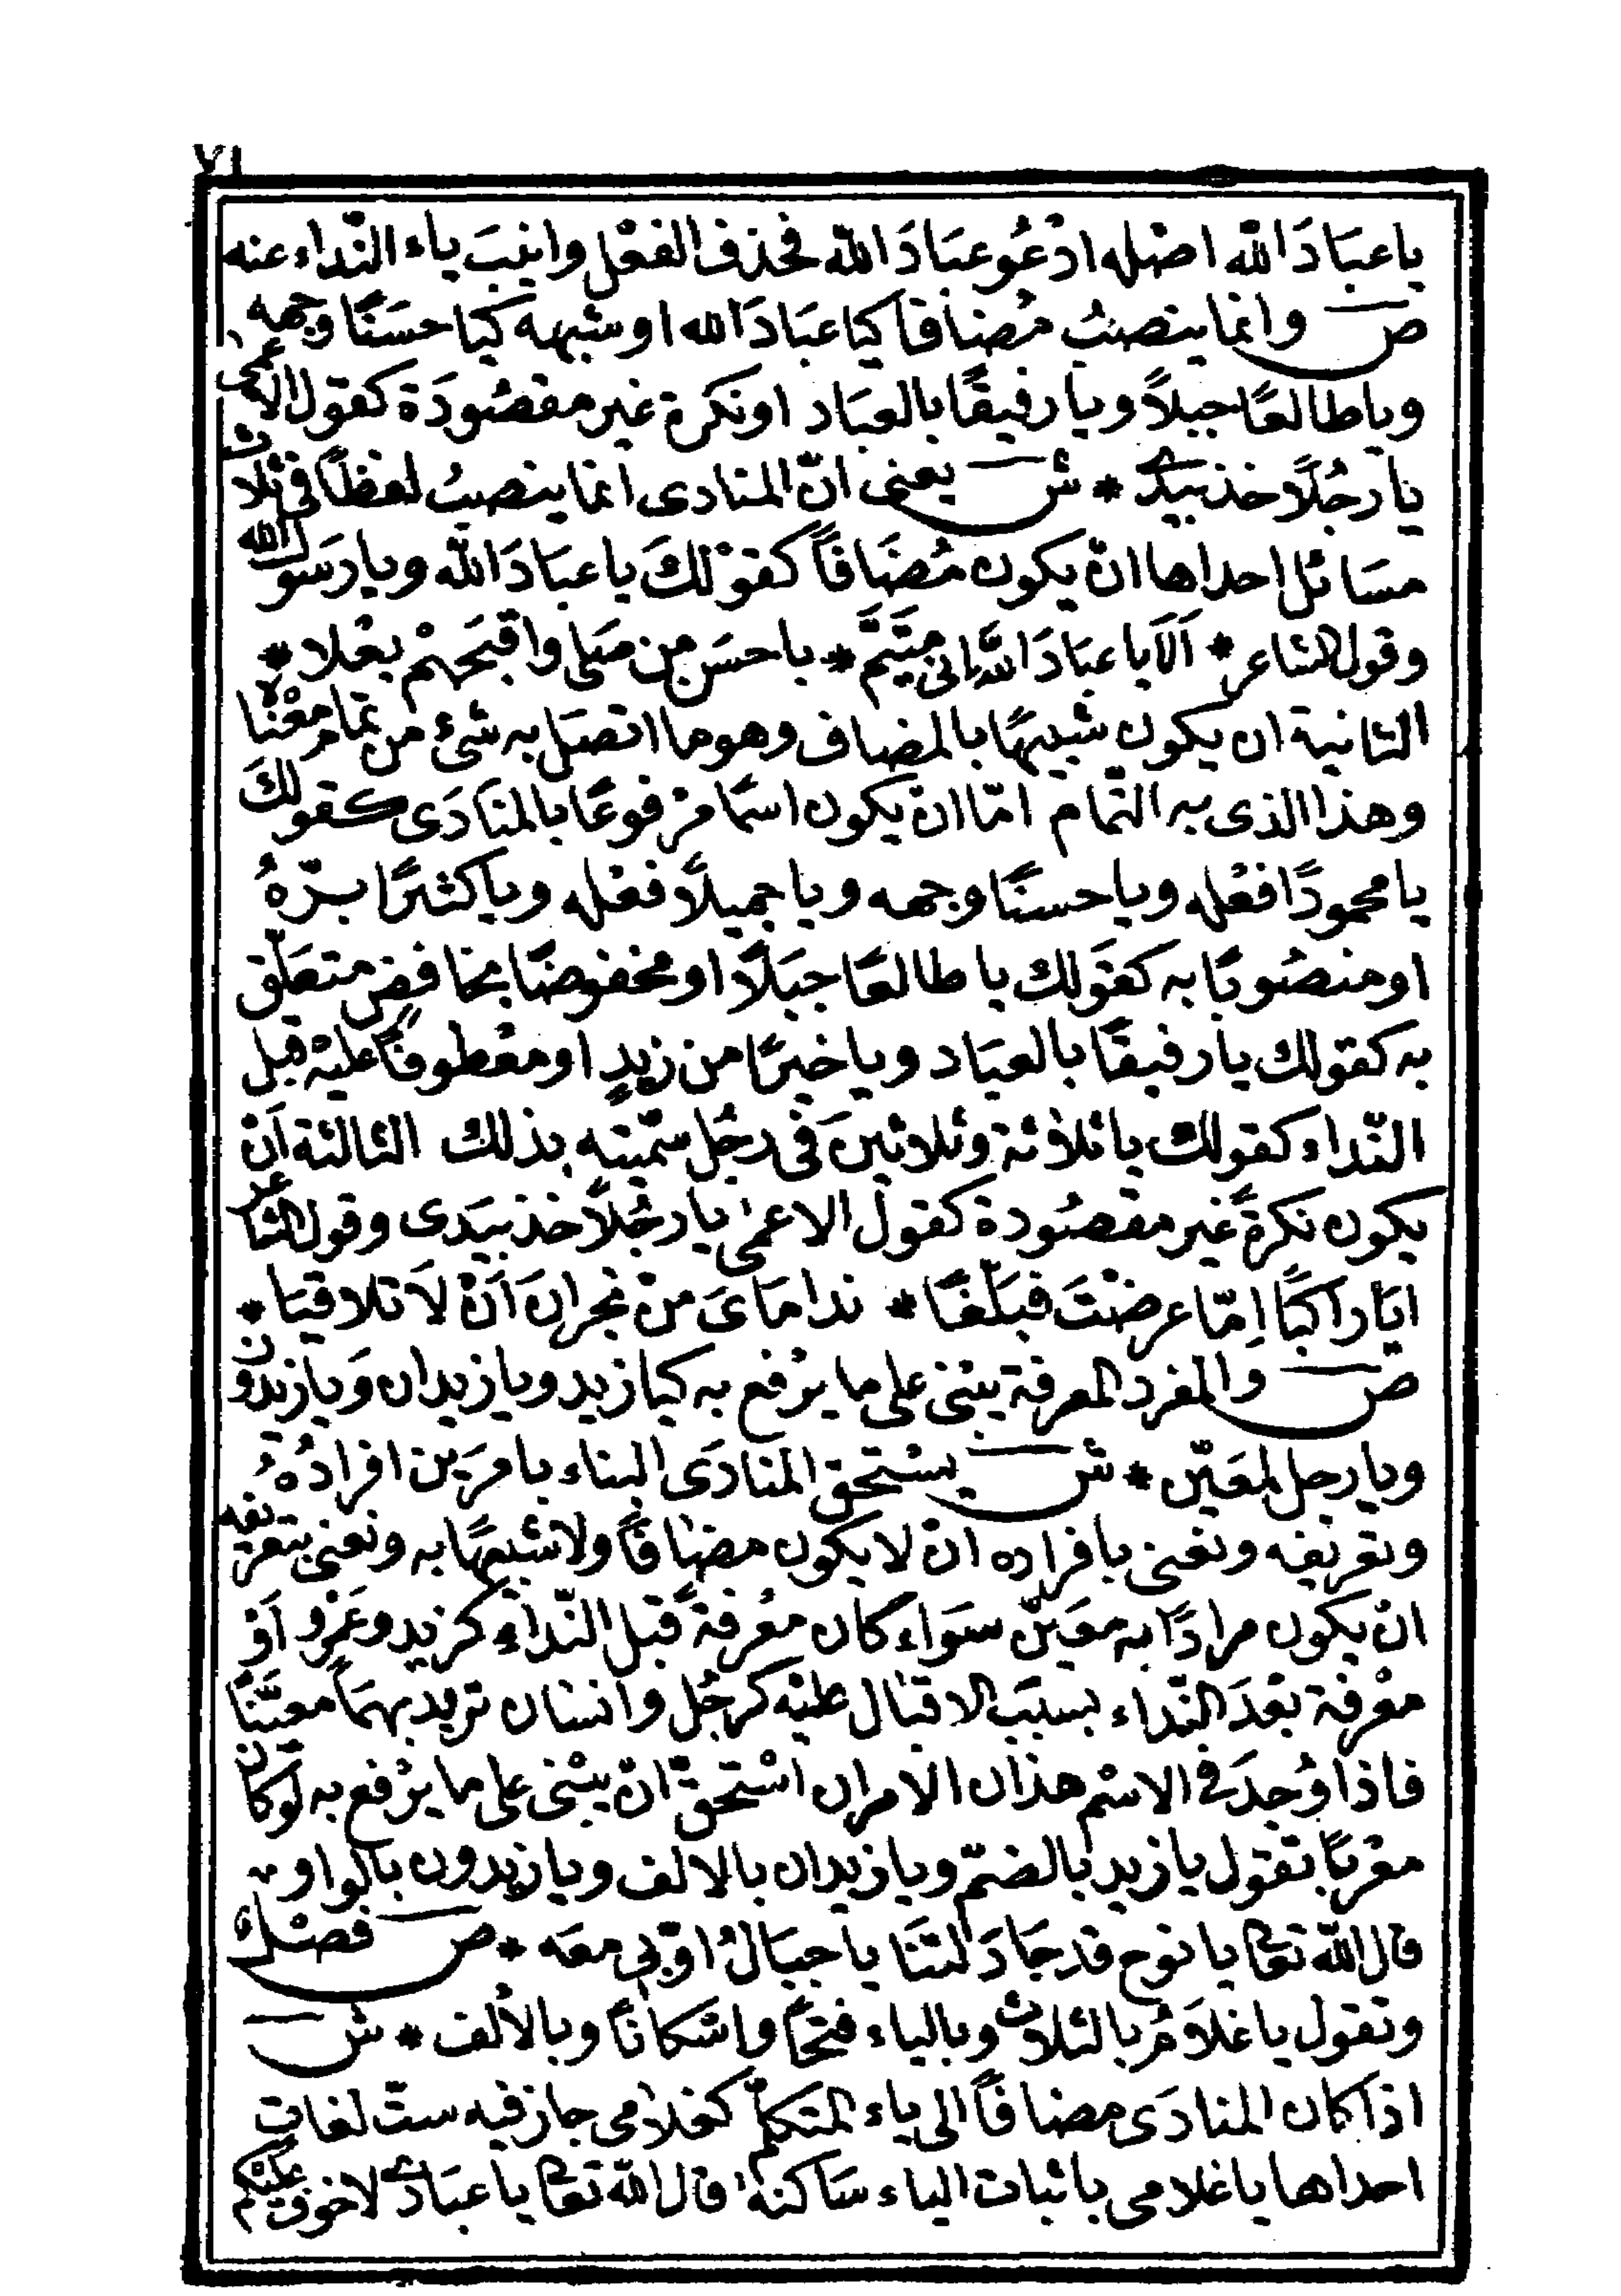 ٧١
يا عبَادَ الله اصْله ادْعُو عبَادَ الله فحُذف الفعْل وانيبَ ياء النّداء عنه
ص وانما ينصبُ مُضافا كيا عبَادَ الله او شبهه كيا حسَنًا وجهه
ويا طالعًا جبلاً ويا رفيقًا بالعبَاد او نكرة غير مقصُودَة كقول الاعمى
يا رجُلاً خذ بيدى * ش يعنى انّ المنادى انما ينصبُ لفظًا فى ثلاث
مسَائل احداها انْ يكون مُضَافًا كقوْلكَ يا عبَادَ الله ويا رَسول الله
وقول الشاعر * اَلاَ يا عبَادَ اللهِ انى متَيَّم * يا حسَن من صَلى واقبَحهْم بعْلا *
الثانية ان يكون شبيهًا بالمضاف وهو ما اتصَل به شئ من تمام معْناه
وهذا الذى به التّمام امّا انْ يكون اسمًا مرْفوعًا بالمنادَى كقولكَ
يا محمودًا فعْله ويا حسنًا وجهه ويا جميلاً فعْله ويا كثيرًا برّهُ
او منصُوبًا به كقَولك يا طالعًا جبَلاً او مخفوضًا بخافضٍ متعَلّق
به كقولك يا رفيقًا بالعبَاد ويا خيرًا من زيدٍ او معْطوفًا عليْه قبل
النّداء كقولك يا ثلاثة وثلاثينَ فى رجُل سمّيته بذلك الثالثة اَنْ
يكون نكرةً غير مقصُودة كقول الاعمىٰ يا رجُلاً خذ بيَدى وقول الشاعر
ايَا راكبًا اِمّا عرضْتَ فبَلّغًا * ندامَاىَ منْ نجران اَنْ لاَ تلاقيَا *
ص والمفرد المعرفة يبْنى على ما يرْفع به كيا زيد ويا زيدان وَيا زيْدون
ويا رجل لمعَيّن * ش يسْتحق المنادَى البناء بامرَين افرادُهُ
وتعْريفه ونعْنى بافراده انْ لا يكون مضافًا ولا شبيهًا به ونعْنى بتعريفه
انْ يكون مرادًا به معَيّن سوَاء كان معْرفةً قبل النّداءِ كزيد وعَمْرو اَوْ
معْرفة بعْدَ النّداء بسبَب الاقبال عليْه كرجُل وانسان تريد بهمَا معيَّنًا
فاذا وُجدَ فى الاسْم هذان الامران اسْتحقّ انْ يبْنى على ما يرْفع به لَوْ كان
معْربًا تقول يا زيد بالضمّ ويا زيدان بالالف ويا زيدون بالواو
قال الله تعالى يا نوح قد جَادَلتَنَا يا جبَالُ اوّبى معَه * ص فصْل
وتقول يا غلاَمُ بالثلاث وبالياء فتْحًا واسْكانًا وبالاَلف * ش
اذا كان المنادَى مضافًا الى ياء المتكلّم كغلامى جاز فيه ستّ لغات
احداها يا غلامى باثبات الياء سَاكنة قال الله تعالى يا عبَادى لا خوف عليْكم